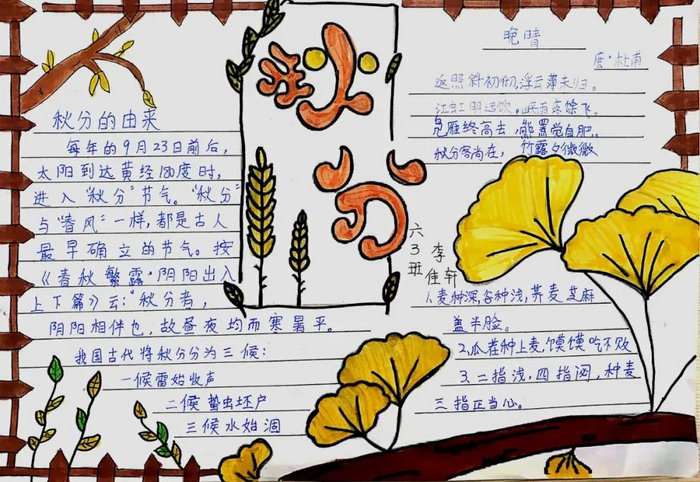 秋分
秋分的由来
每年的9月23日前后,
太阳到达黄经180度时,
进入"秋分"节气。"秋分"
与"春风"一样,都是古人
最早确立的节气。按
《春秋繁露·阴阳出入
上下篇》云:"秋分者,
阴阳相伴也,故昼夜均而寒暑平。
我国古代将秋分分为三候:
一候雷始收声
二候蛰虫坯户
三候水始涸
晚晴
唐·杜甫
返照斜初彻,浮云薄未归。
江虹明远饮,峡雨落馀飞。
凫雁终高去,熊罴觉自肥。
秋分客尚在,竹露夕微微
六3班
李佳轩
1.麦种深,各种浅,荞麦芝麻
盖半脸。
2.瓜茬种上麦,馍馍吃不败
3.二指浅,四指闷,种麦
三指正当心。